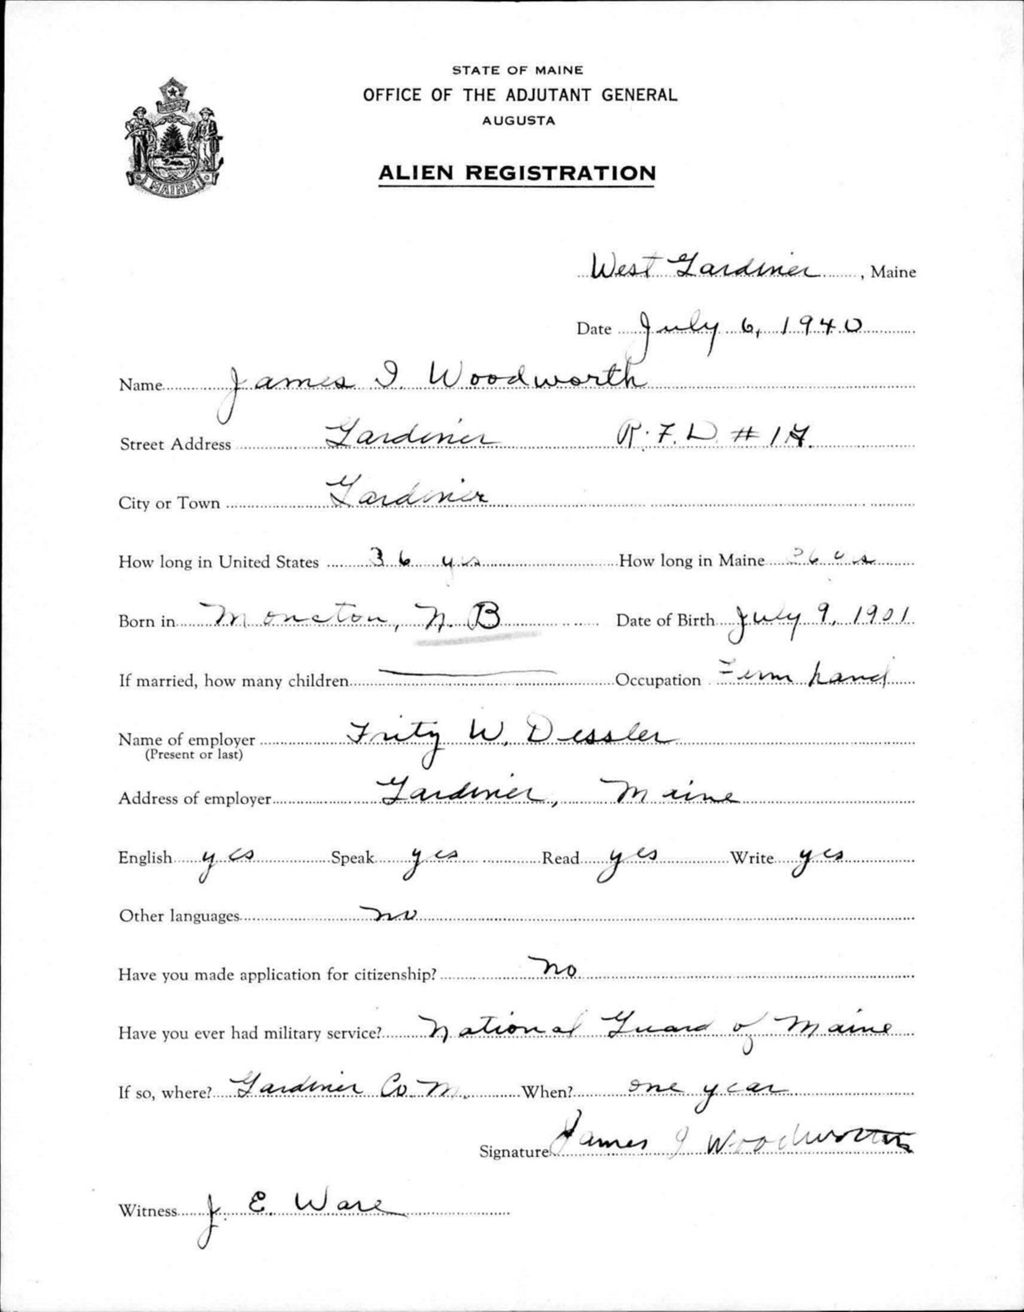 STATE OF MAINE
OFFICE OF THE ADJUTANT GENERAL
AUGUSTA
ALIEN REGISTRATION
MAINE
West Gardiner, Maine
Date July 6, 1940
Name James I. Woodworth
Street Address Gardiner R.F.D. #
City or Town Gardiner
How long in United States 36 yrs How long in Maine 36
Born in Moncton, N.B Date of Birth July 9, 1901
If married, how many children Occupation hand
Name of employer W. Dessler
(Present or last)
Address of employer Gardiner, Maine
English yes Speak yes Read yes Write yes
Other languages no
Have you made application for citizenship? No
Have you ever had military service? National Guard of Maine
If so, where? Gardiner Co. M. When? one year
Signature James I Woodworth
Witness J. E. Ware